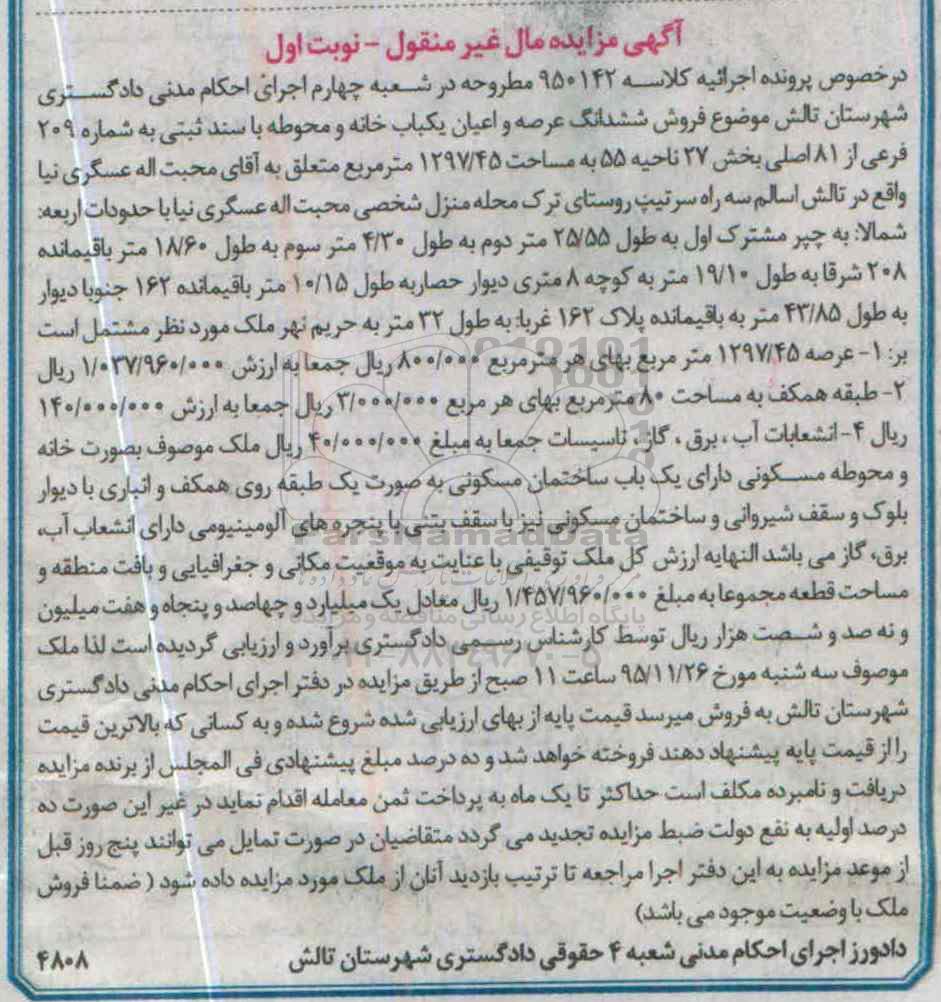 آگهی مزایده مال غیر منقول - نوبت اول
درخصوص پرونده اجرائیه کلاسه ۹۵۰۱۴۲ مطروحه در شعبه چهارم اجرای احکام مدنی دادگستری
شهرستان تالش موضوع فروش ششدانگ عرصه و اعیان یکباب خانه و محوطه با سند ثبتی به شماره ۲۰۹
فرعی از ۸۱ اصلی بخش ۲۷ ناحیه ۵۵ به مساحت ۱۲۹۷/۴۵ مترمربع متعلق به آقای محبت اله عسگری نیا
واقع در تالش اسالم سه راه سرتیپ روستای ترک محله منزل شخصی محبت اله عسگری نیا با حدودات اربعه:
شمالا: به چپر مشترک اول به طول ۲۵/۵۵ متر دوم به طول ۴/۳۰ متر سوم به طول ۱۸/۶۰ متر باقیمانده
۲۰۸ شرقا به طول ۱۹/۱۰ متر به کوچه ۸ متری دیوار حصاربه طول ۱۰/۱۵ متر باقیمانده ۱۶۲ جنوبا دیوار
به طول ۴۳/۸۵ متر به باقیمانده پلاک ۱۶۲ غربا: به طول ۳۲ متر به حریم نهر ملک مورد نظر مشتمل است
بر: ۱- عرصه ۱۲۹۷/۴۵ متر مربع بهای هر مترمربع ۸۰۰/۰۰۰ ریال جمعا به ارزش ۱/۰۳۷/۹۶۰/۰۰۰ ریال
۲- طبقه همکف به مساحت ۸۰ مترمربع بهای هر مربع ۳/۰۰۰/۰۰۰ ریال جمعا به ارزش ۱۴۰/۰۰۰/۰۰۰
ریال ۴- انشعابات آب ، برق ، گاز ، تاسیسات جمعا به مبلغ ۴۰/۰۰۰/۰۰۰ ریال ملک موصوف بصورت خانه
و محوطه مسکونی دارای یک باب ساختمان مسکونی به صورت یک طبقه روی همکف و انباری با دیوار
بلوک و سقف شیروانی و ساختمان مسکونی نیز با سقف بتنی با پنجره های آلومینیومی دارای انشعاب آب،
برق، گاز می باشد النهایه ارزش کل ملک توقیفی با عنایت به موقعیت مکانی و جغرافیایی و بافت منطقه و
مساحت قطعه مجموعا به مبلغ ۱/۴۵۷/۹۶۰/۰۰۰ ریال معادل یک میلیارد و چهاصد و پنجاه و هفت میلیون
و نه صد و شصت هزار ریال توسط کارشناس رسمی دادگستری برآورد و ارزیابی گردیده است لذا ملک
موصوف سه شنبه مورخ ۹۵/۱۱/۲۶ ساعت ۱۱ صبح از طریق مزایده در دفتر اجرای احکام مدنی دادگستری
شهرستان تالش به فروش میرسد قیمت پایه از بهای ارزیابی شده شروع شده و به کسانی که بالاترین قیمت
را از قیمت پایه پیشنهاد دهند فروخته خواهد شد و ده درصد مبلغ پیشنهادی فی المجلس از برنده مزایده
دریافت و نامبرده مکلف است حداکثر تا یک ماه به پرداخت ثمن معامله اقدام نماید در غیر این صورت ده
درصد اولیه به نفع دولت ضبط مزایده تجدید می گردد متقاضیان در صورت تمایل می توانند پنج روز قبل
از موعد مزایده به این دفتر اجرا مراجعه تا ترتیب بازدید آنان از ملک مورد مزایده داده شود ( ضمنا فروش
ملک با وضعیت موجود می باشد)
دادورز اجرای احکام مدنی شعبه ۴ حقوقی دادگستری شهرستان تالش
۴۸۰۸
ParsNamadData
پایگاه اطلاع رسانی مناقصه و مزایده